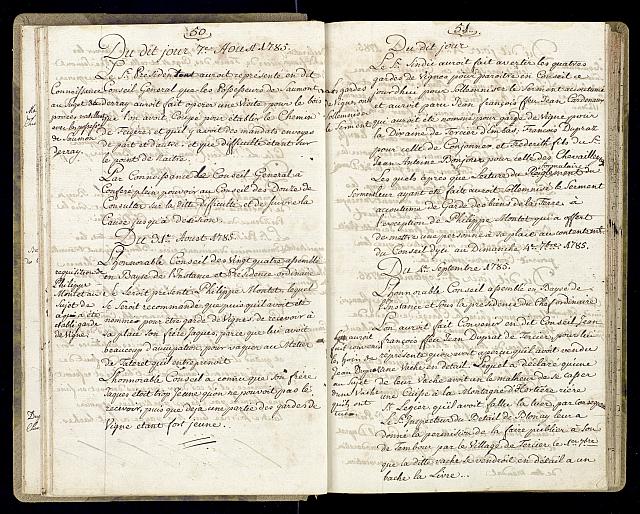 50
Du dit jour 7e Aoust 1785.
Le Sr. Président auroit représenté en dit
Conseil Général que les Possesseurs de Saumont
auroit fait opérer une Visite pour le bois
que l'on avoit Coupé pour établir le Chemin
de Feygire; et qu'il y avoit des mandats envoyés
de part et d'autre; et que difficulté étant sur
le point de naitre.
Par Connoissance le Conseil Général a
Conféré plein pouvoir au Conseil des Douze de
Consulter sur la ditte difficulté, et de suivre la
Cause jusqu'à décision.
Du 21e. Aoust 1785.
L'honorable Conseil des Vingt quatre assemblé
en Bayse de l'Instance et Présidence ordinaire
se seroit présenté Philippe Montet, lequel
se seroit recommandé que puis qu'il avoit été
nommés pour être garde de Vignes de recevoir à
sa place son frère Jaques; parce que lui avoit
beaucoup d'occupation, pour vaquer au Métier
qu'il entreprenoit
L'honorable Conseil a connu que son frère
Jaques étoit trop Jeune qu'on ne pouvoit pas le
recevoir, puis que déja une partie des gardes de
Vigne étant fort jeune.
Connoissance
au Sujet
Philippe
Montet au
Sujet de
établi garde
de Vigne.
51
Du dit jour
Le Sr. Sindic auroit fait avertir les quatres
gardes de Vignes pour paroitre en Conseil ce
jourd'hui pour Sollemniser le Serment accoutumé
et auroit paru Jean françois ffeu Jean Cardenaux
qui auroit été nommé pour garde de Vigne pour
la Diraine de Tercier d'en bas, François Dupraz
pour celle de Cojonnex, et Frédérich fils du Sr.
Jean Antoine Bonjour pour celle des Chevalleyres
Les quels après que Lecture du Règlement
formulaire
appert été fait auroit Sollemnisé le Serment
accoutumé de Garde des biens de la Terre, à
l'exception de Philippe Montet qui a offert
de mettre une personne à sa place au contentement
du Conseil d'ycy au Dimanche 4e 7bre 1785.
Du 1er. Septembre 1785.
L'honorable Conseil assemblé en Bayse de
l'Instance et sous la présidence de Chef ordinaire
L'on auroit fait Convenir en dit Conseil Jean
françois ffeu Jean Duprat de Tercier, pour lui
représenté qu'on avoit aperçu qu'il avoit vendu
une Vache en détail. Lequel a déclaré qu'une
de leur Vache avoit eu le malheur de se casser
une Cuisse à la Montagne d'Hortière rière
St. Légier, qu'il avoit fallu la tuer, par Consequent
le Sr. Inspecteur du Bétail de Blonay leur a
donné la permission de la faire publier à son
de Tambour par le Village de Tercier
que la ditte vache se vendroit en détail à un
bache la Livre...
Les gardes
de Vigne, ont
Sollemnisé
le Serment
Jean Duprat
au Sujet
d'une Vache
qu'ils ont